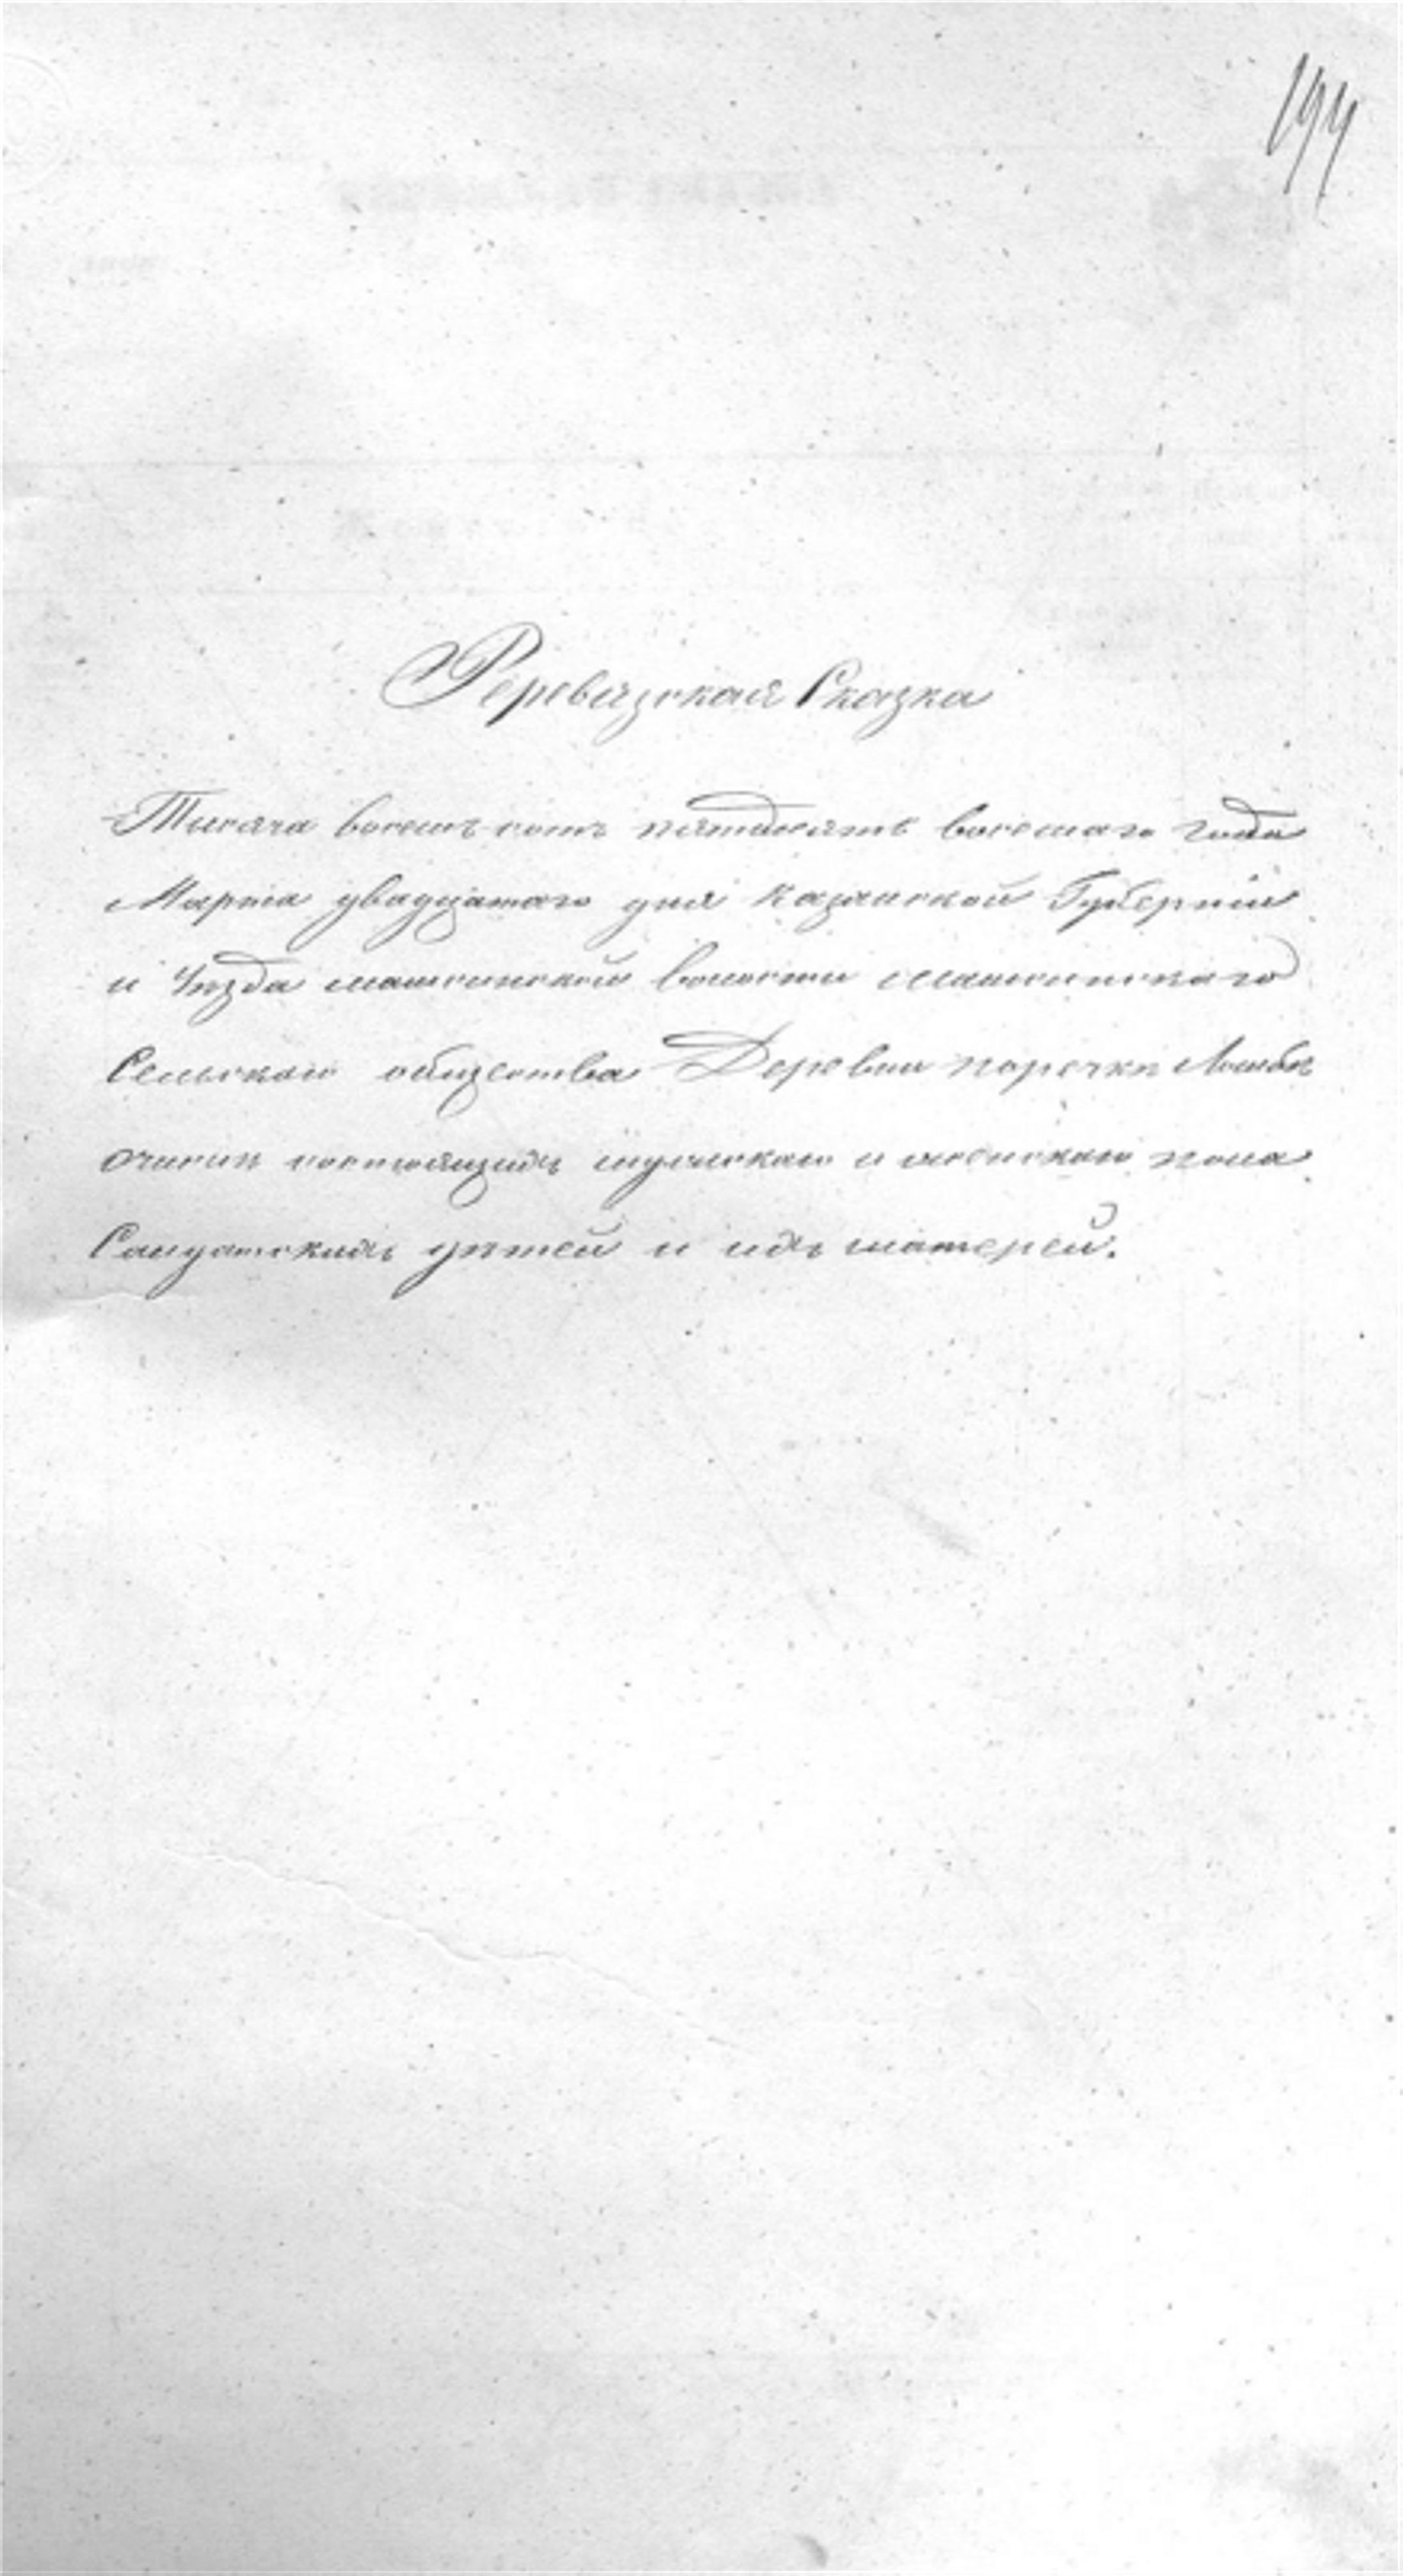 194
Реревизская Сказка
Тысяча восемь сотъ пятдесятъ восемаго года
Марта двадцатаго дня Казанской Губерніи
и Уезда машкинской волости машкинскаго
Сельскаго общества Деревни поречки
состоящихъ мужскаго и женскаго пола
Салдатскихъ детей и ихъ матерей.